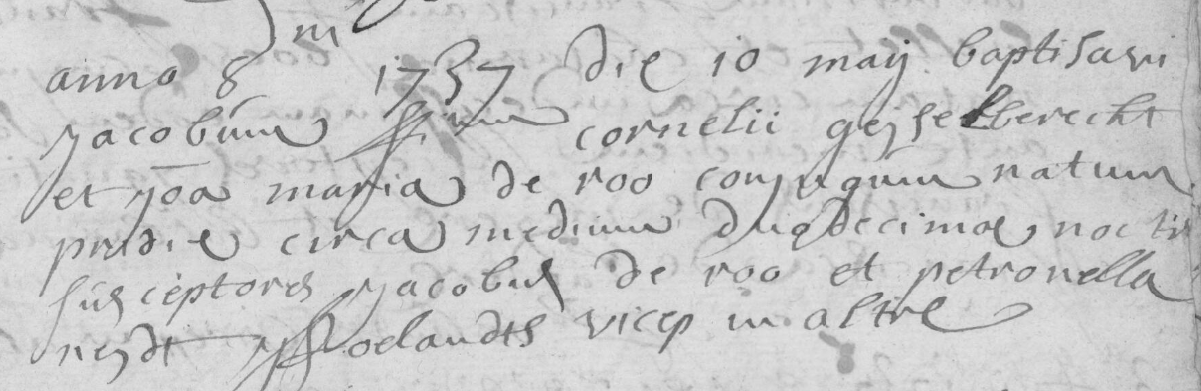 Dni
anno 8 1737 die 10 maij baptisavi
Jacobum filium cornelii geijselberecht
et joa maria de roo conjugum natum
pridie circa medium duodecimae noctis
susceptores Jacobus de roo et petronella
neijdt roelandts vicep in altre